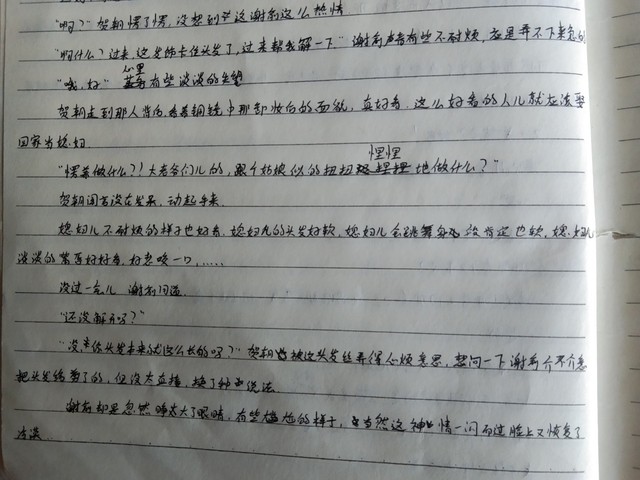 "啊?" 贺朝愣了愣,没想到谢俞这么热情
"啊什么?过来,这发饰卡住头发了,过来帮我解一下"谢俞声音有些不耐烦,应是弄不下来急的
心里
"哦,好" 有些淡淡的失望
贺朝走到那人背后,看着铜镜中那卸妆后的面貌,真好看,这么好看的人儿就应该娶
回家当媳妇
"愣着做什么?!大老爷们儿的,跟个姑娘似的扭扭捏捏地做什么?"
贺朝闻言没在发呆,动起手来
媳妇儿不耐烦的样子也好看,媳妇儿的头发好软,媳妇儿会跳舞身段肯定也软,媳妇儿
淡淡的
好好看,好想咬一口,……
没过一会儿 谢俞问道
"还没解开吗?"
"没,你头发本来就这么长的吗?"贺朝被这头发丝弄得心烦意思,想问一下谢俞介不介意
把头发给剪了的,但没太直接,换了种说法
谢俞却是忽然睁大了眼睛,有些尴尬的样子,当然这神情一闪而过脸上又恢复了
冷漠